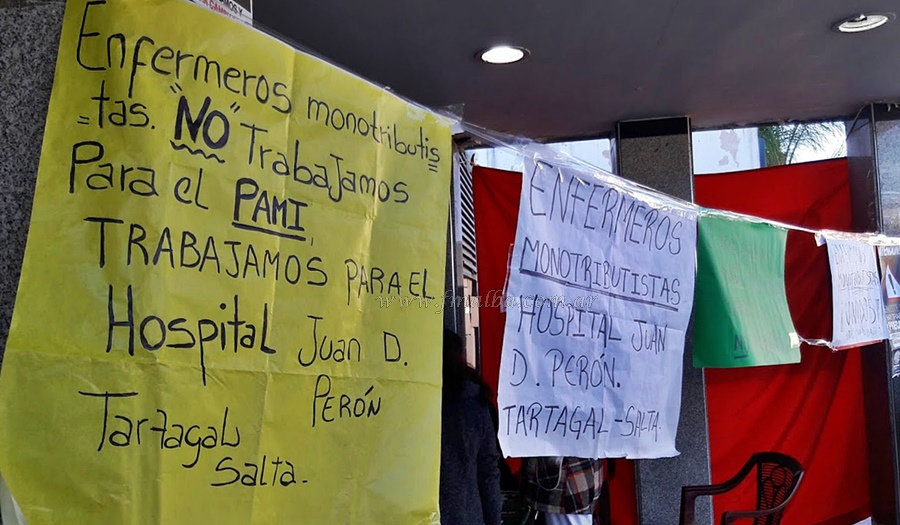 Enfermeros monotributis
=tas. "NO" Trabajamos
Para el PAMI,
TRABAJAMOS PARA EL
Hospital Juan D.
PERÓN
Tartagal
Salta.
ENFERMEROS
MONOTRIBUTISTAS
HOSPITAL JUAN
D. PERÓN.
TARTAGAL-SALTA.
www.fmalba.com.ar